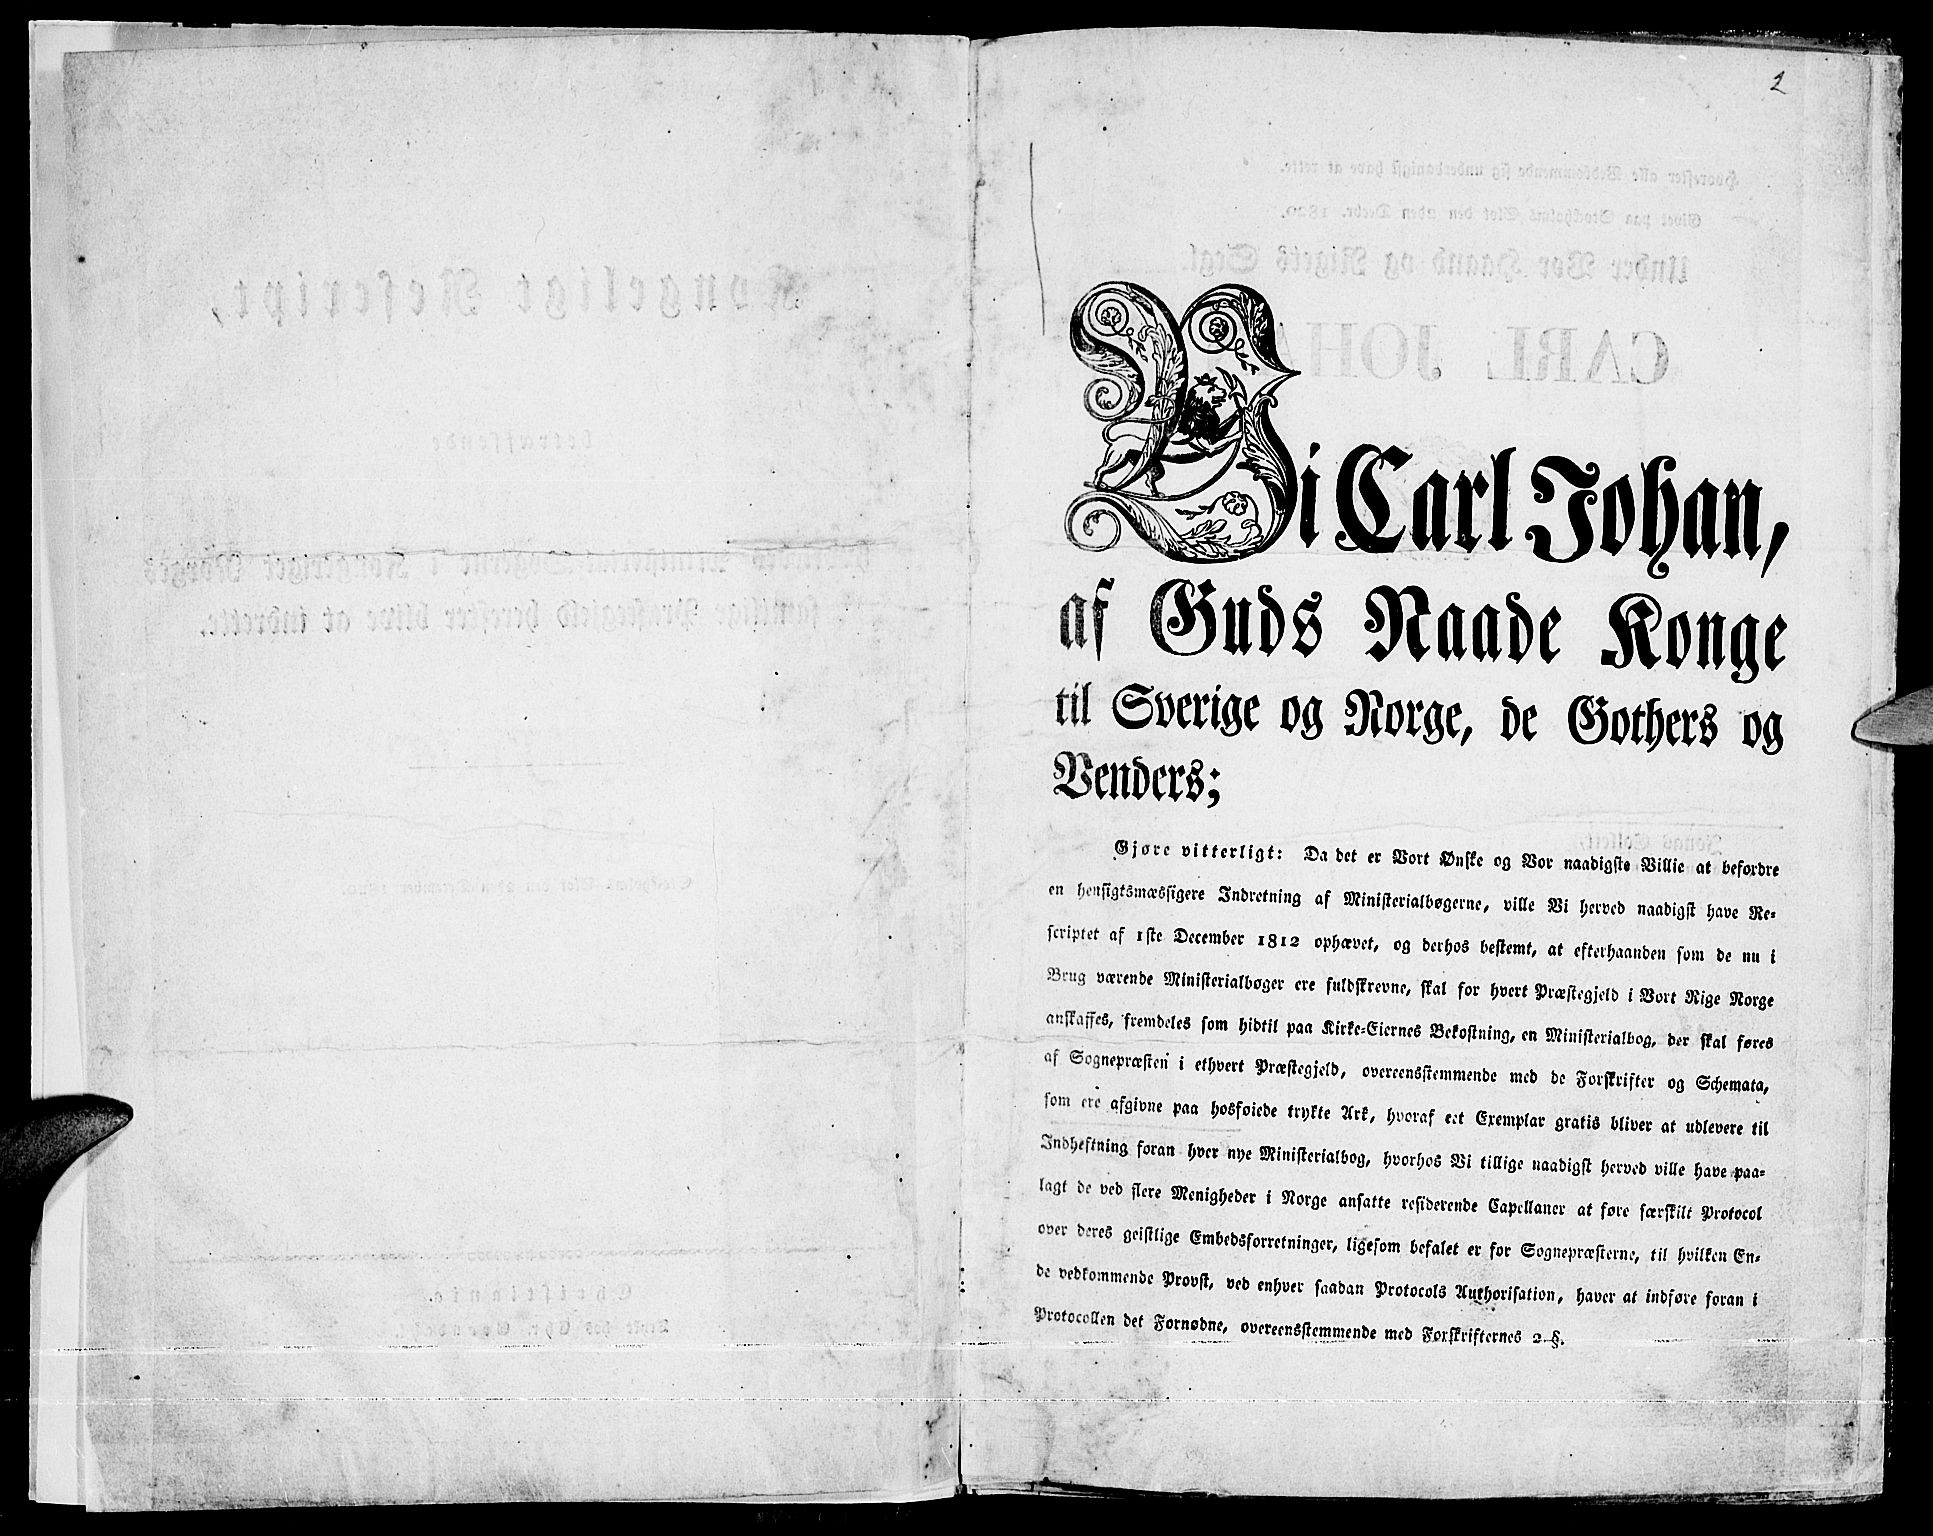 2
Vi Carl Johan,
af Guds Naade Konge
til Sverige og Norge, de Gothers og
Venders;
Gjøre vitterligt: Da det er Vort Ønske og Vor naadigste Villie at befordre
en hensigtsmæssigere Indretning af Ministerialbøgerne, ville Vi herved naadigst have Re-
scriptet af 1ste December 1812 ophævet, og derhos bestemt, at efterhaanden som de nu i
Brug værende Ministerialbøger ere fuldskrevne, skal for hvert Præstegjeld i Vort Rige Norge
anskaffes, fremdeles som hidtil paa Kirke-Eiernes Bekostning, en Ministerialbog, der skal føres
af Sognepræsten i ethvert Præstegjeld, overeensstemmende med de Forskrifter og Schemata,
som ere afgivne paa hosføiede trykte Ark, hvoraf eet Exemplar gratis bliver at udlevere til
Indheftning foran hver nye Ministerialbog, hvorhos Vi tillige naadigst herved ville have paa-
lagt de ved flere Menigheder i Norge ansatte residerende Capellaner at føre særskilt Protocol
over deres geistlige Embedsforretninger, ligesom befalet er for Sognepræsterne, til hvilken En-
de vedkommende Provst, ved enhver saadan Protocols Authorisation, haver at indføre foran i
Protocollen det Fornødne, overeensstemmende med Forskrifternes 2 §.